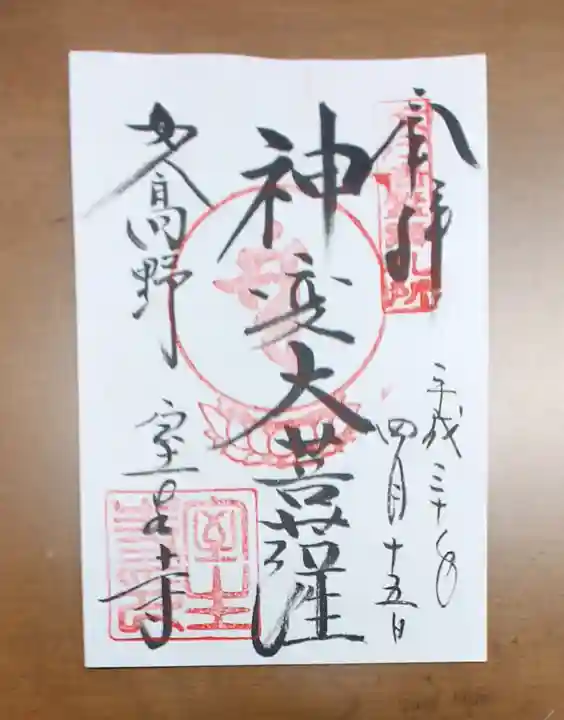 奉拝
平成三十年
四月十五日
神変大菩薩
女人高野
室生寺